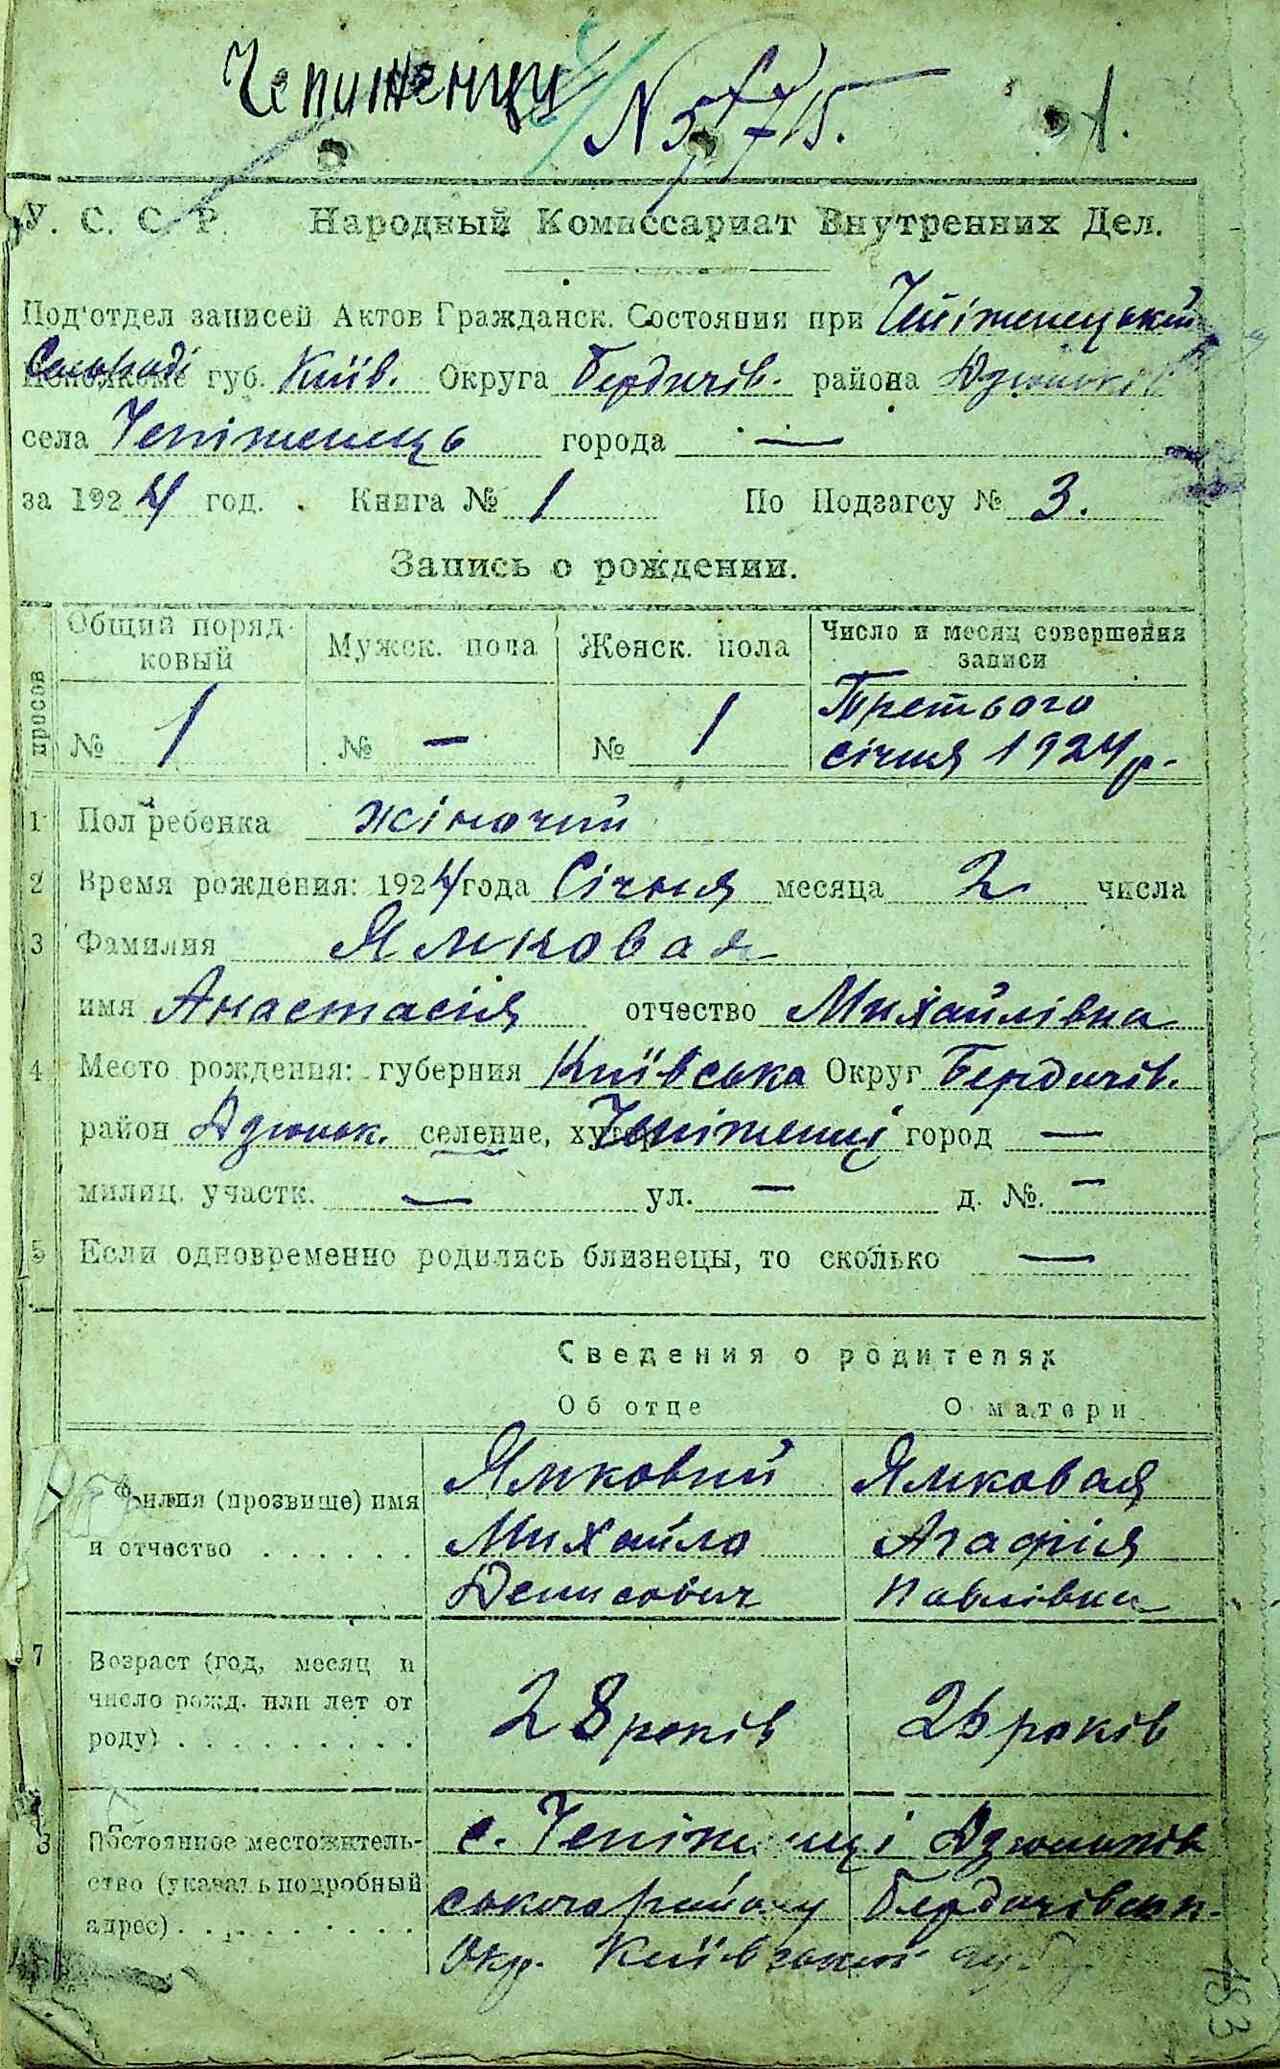 Чепиженци № 5715. 1.
У. С. С. Р. Народный Комиссариат Внутренних Дел.
Под'отдел записей Актов Гражданск. Состояния при Чепіженецькій
Сельраді губ. Київ. Округа Бердичів. района Дзюньків
села Чепіженець города —
за 1924 год. Книга № 1 По Подзагсу № 3.
Запись о рождении.
Общий поряд-
ковый Мужск. пола Женск. пола Число и месяц совершения
записи
просов № 1 № — № 1 Третього
січня 1924 р.
1 Пол ребенка жіночий
2 Время рождения: 1924 года Січня месяца 2 числа
3 Фамилия Ямковая
имя Анастасія отчество Михайлівна
4 Место рождения: губерния Київська Округ Бердичів.
район Дзюньк. селение, хутор Чепіженці город —
милиц. участк. — ул. — д. №. —
5 Если одновременно родились близнецы, то сколько —
Сведения о родителях
Об отце О матери
Ямковий Ямковая
(прозвище) имя
и отчество Михайло Агафія
Денисович Павлівна
7 Возраст (год, месяц и
число рожд. или лет от 28 років 26 років
роду)
8 Постоянное местожитель- с. Чепіженці Дзюньків
ство (указать подробный ського району Бердичівськ.
адрес) Окр. Київської губ.
183